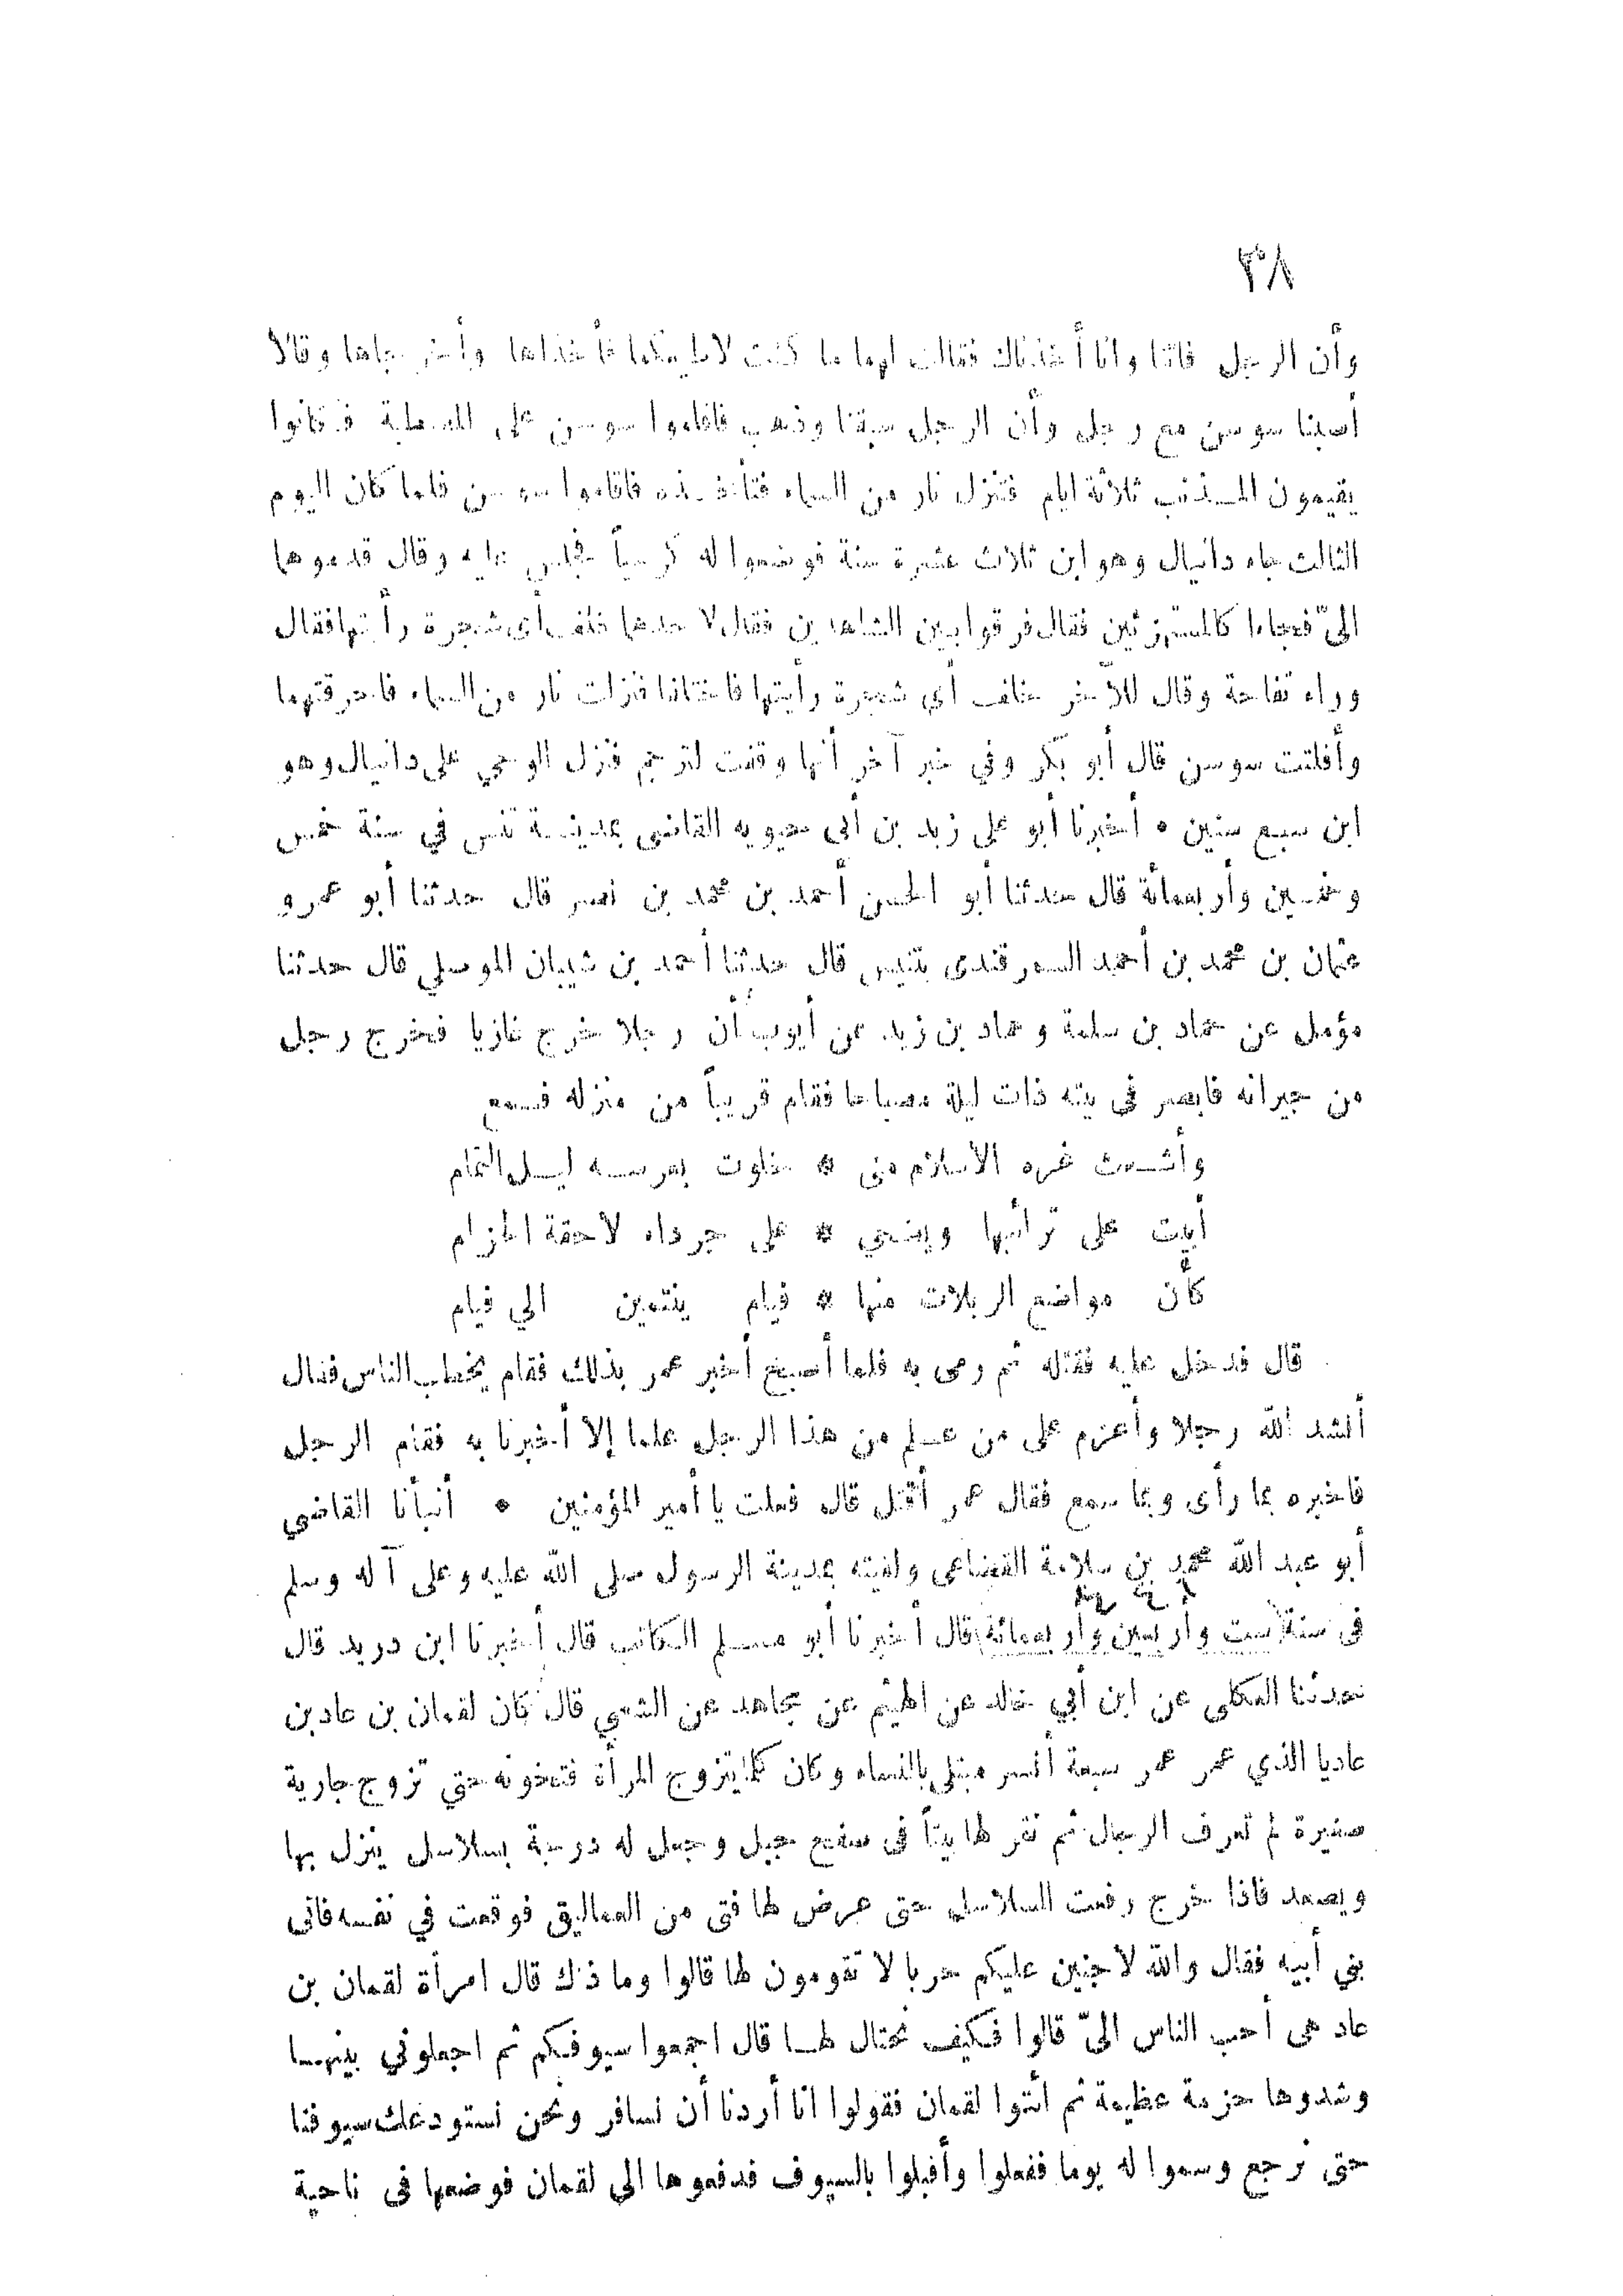 ٣٨
وأن الرجل فاتنا وانا أخذناك فقالت لهما ما كنت لاطيعكما فأخذاها وأخرجاها وقالا
أصبنا سوسن مع رجل وأن الرجل سبقنا وذهب فاقاموا سوسن على المصطبة فكانوا
يقيمون المذنب ثلاثة ايام فتنزل نار من السماء فتأخذه فاقاموا سوسن فلما كان اليوم
الثالث جاء دانيال وهو ابن ثلاث عشرة سنة فوضعوا له كرسياً فجلس عليه وقال قدموها
الىّ فجاءا كالمستهزئين فقال فرقوا بين الشاهدين فقال لاحدها خلف أى شجرة رأيتها فقال
وراء تفاحة وقال للآخر خلف أى شجرة رأيتها فاختلفا فنزلت نار من السماء فاحرقتهما
وأفلتت سوسن قال أبو بكر وفي خبر آخر أنها وقفت لترجم فنزل الوحي على دانيال وهو
ابن سبع سنين • أخبرنا أبو على زيد بن أبى حيويه القاضى بمدينة تنس في سنة خمس
وخمسين وأربعمائة قال حدثنا أبو الحسن أحمد بن محمد بن نصر قال حدثنا أبو عمرو
عثمان بن محمد بن أحمد السمرقندى بتنيس قال حدثنا أحمد بن شيبان الموصلي قال حدثنا
مؤمل عن حماد بن سلمة وحماد بن زيد عن أيوب أن رجلا خرج غازيا فخرج رجل
من جيرانه فابصر فى بيته ذات ليلة مصباحا فقام قريباً من منزله فسمع
وأشعث غره الاسلام منى * خلوت بعرسه ليل التمام
أبيت على ترائبها ويضحي * على جرداء لاحقة الحزام
كأن مواضع الربلات منها * فيام ينتمين الي فيام
قال فدخل عليه فقتله ثم رمى به فلما أصبح أخبر عمر بذلك فقام يخطب الناس فقال
أنشد الله رجلا وأعزم على من علم من هذا الرجل علما إلا أخبرنا به فقام الرجل
فاخبره بما رأى وبما سمع فقال عمر أقتل قال فعلت يا أمير المؤمنين • أنبأنا القاضي
أبو عبد الله محمد بن سلامة القضاعى ولقيته بمدينة الرسول صلى الله عليه وعلى آله وسلم
فى سنة ست وأربعين وأربعمائة قال أخبرنا أبو مسلم الكاتب قال أخبرنا ابن دريد قال
حدثنا العكلى عن ابن أبي خالد عن الهيثم عن مجاهد عن الشعبي قال كان لقمان بن عاد بن
عاديا الذي عمر عمر سبعة أنسر مبتلى بالنساء وكان كلما يتزوج المرأة فتخونه حتي تزوج جارية
صغيرة لم تعرف الرجال ثم نقر لها بيتاً فى سفح جبل وجعل له درجة بسلاسل ينزل بها
ويصعد فاذا خرج رفعت السلاسل حتى عرض لها فتى من العماليق فوقعت في نفسه فاتى
بني أبيه فقال والله لاجنين عليكم حربا لا تقومون لها قالوا وما ذاك قال امرأة لقمان بن
عاد هى أحب الناس الىّ قالوا فكيف نحتال لها قال اجمعوا سيوفكم ثم اجعلوني بينها
وشدوها حزمة عظيمة ثم أئتوا لقمان فقولوا انا أردنا أن نسافر ونحن نستودعك سيوفنا
حتى نرجع وسموا له يوما ففعلوا وأقبلوا بالسيوف فدفعوها الي لقمان فوضعها فى ناحية